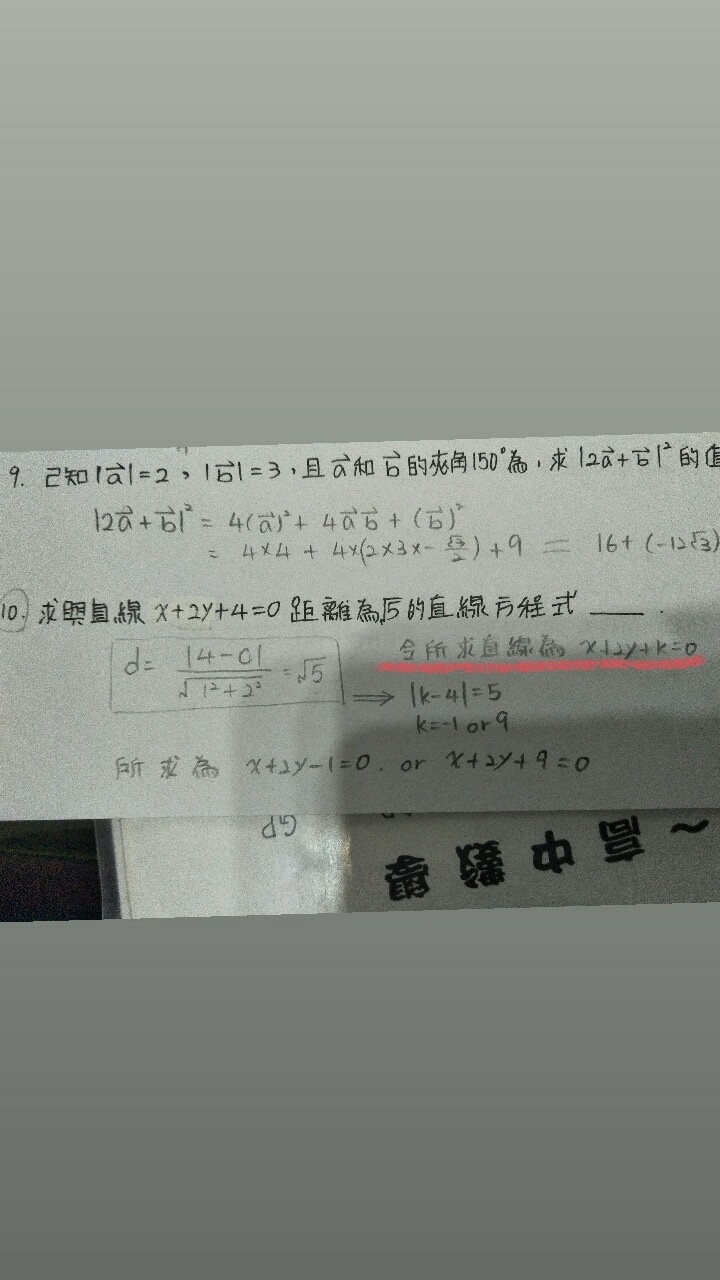 9. 已知|a⃗|=2，|b⃗|=3，且a⃗和b⃗的夾角150°為，求|2a⃗+b⃗|²的值
|2a⃗+b⃗|² = 4(a⃗)²+ 4a⃗b⃗ + (b⃗)²
= 4×4 + 4×(2×3×-√3/2)+9 = 16+(-12√3)
10. 求與直線 x+2y+4=0 距離為√5的直線方程式 ___ .
令所求直線為 x+2y+k=0
d= |4-c|/√1²+2² =√5
⟹ |k-4|=5
k=-1 or 9
所求為 x+2y-1=0. or x+2y+9=0
GP
~高中數學